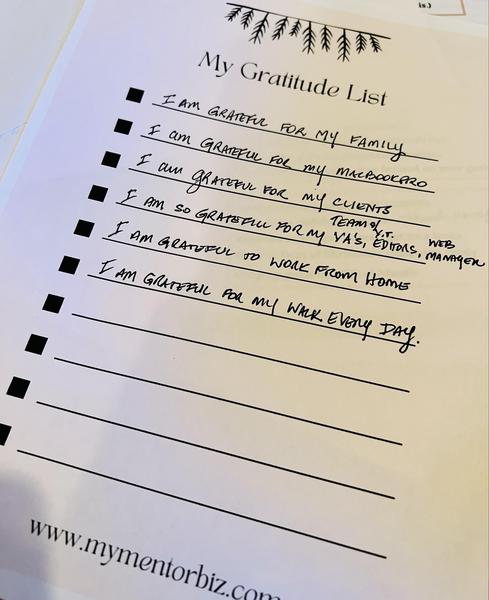 is.)
My Gratitude List
I AM GRATEFUL FOR MY FAMILY
I am GRATEFUL FOR my MACBOOKPRO
I am grateful for my CLIENTS
TEAM of Y.T. WEB
I AM SO GRATEFUL FOR MY VA'S, EDITORS, MANAGER
I AM GRATEFUL TO WORK FROM HOME
I AM GRATEFUL FOR MY WALK EVERY DAY.
www.mymentorbiz.com